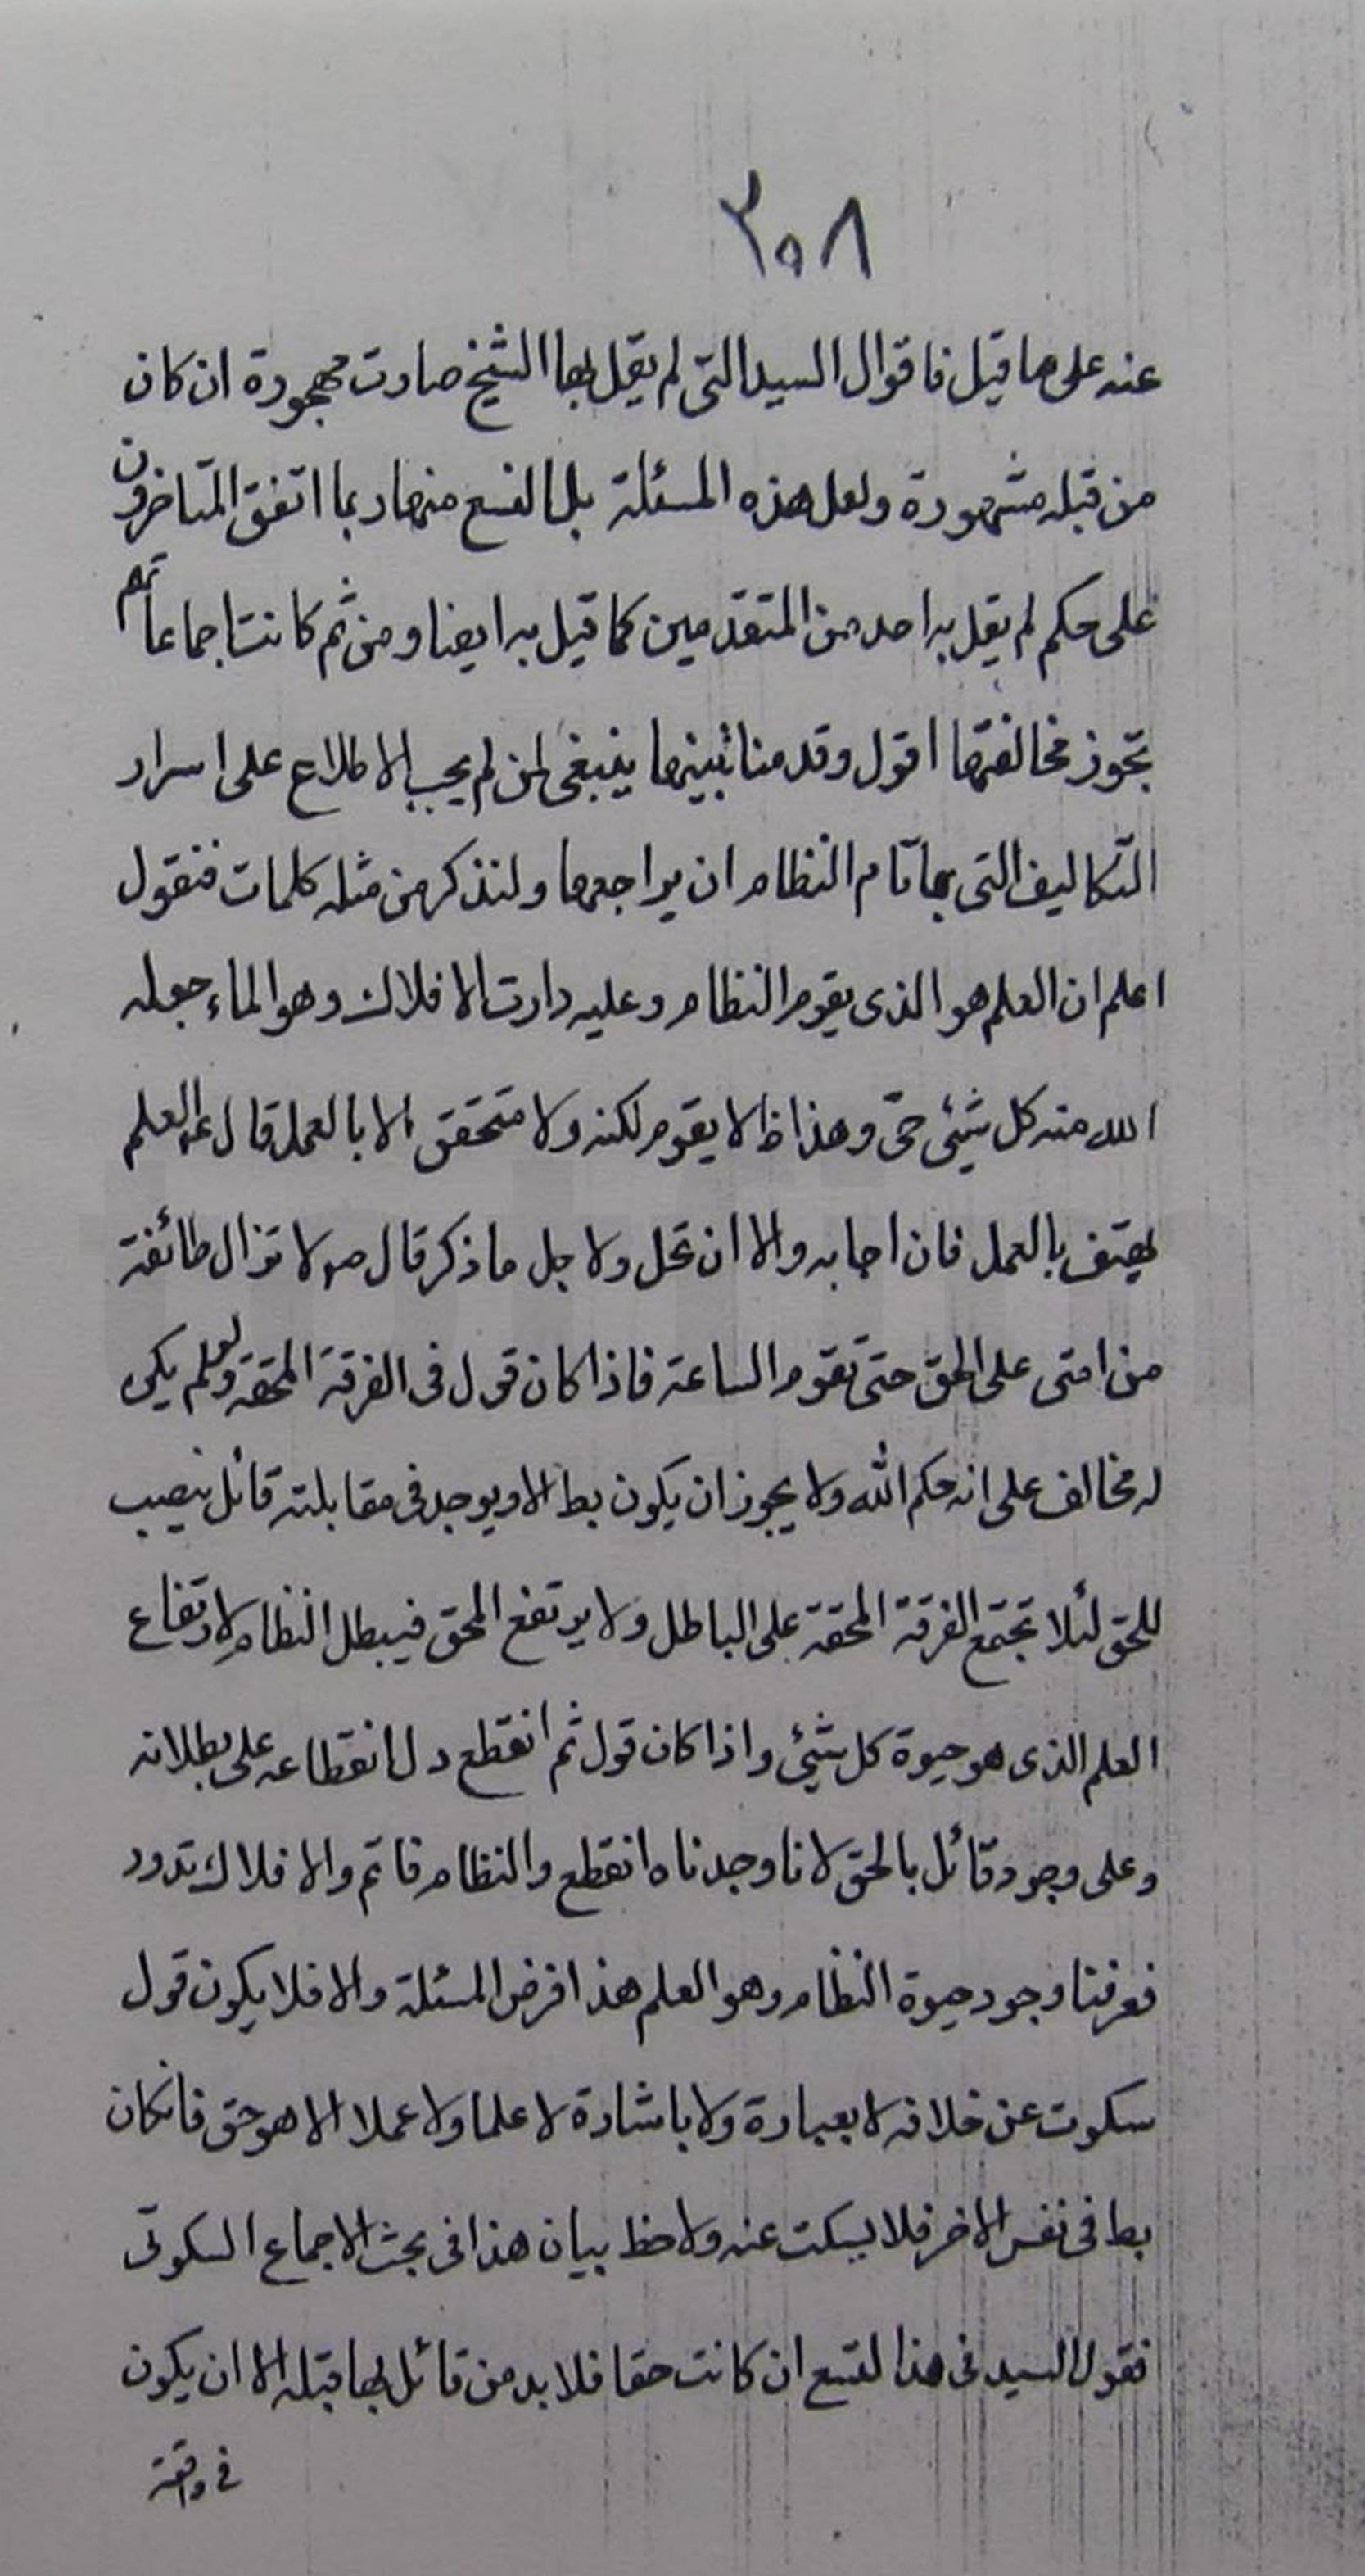 ٣٠٨
عنه على ما قيل فاقوال السيد التى لم يقل بها الشيخ صارت مهجورة ان كان
من قبله مشهورة ولعل هذه المسئلة بل التسع منها ربما اتفق المتاخرون
على حكم لم يقل به احد من المتقدّمين كما قيل به ايضا ومن ثم كانت اجماعاتهم
تجوز مخالفتها اقول وقد منا ينبغى لمن لم يحب الاطلاع على اسرار
التكاليف التى بها تمام النظام ان يراجعها ولنذكر من مثله كلمات فنقول
اعلم ان العلم هو الذى يقوم النظام وعليه دارت الافلاك وهو الماء جعل
الله منه كل شيئ حىّ وهذا لا يقوم لكنه ولا متحقق الا بالعمل قال العلم
يهتف بالعمل فان اجابه والا ان تحل ولاجل ما ذكر قال ص لا تزال طائفة
من امتى على الحق حتى تقوم الساعة فاذا كان قول فى الفرقة المحقه ولم يكن
له مخالف على انه حكم الله ولا يجوز ان يكون بط الا ويوجد فى مقابلته قائل يصيب
للحق لئلا تجتمع الفرقة المحقة على الباطل ولا يرتفع المحق فيبطل النظام لارتفاع
العلم الذى هو حيوة كل شيئ واذا كان قول ثم انقطع دل انقطاعه على بطلانه
وعلى وجود قائل بالحق لانا وجدناه انقطع والنظام قائم والافلاك تدور
فعرفنا وجود حيوة النظام وهو العلم هذا فرض المسئلة والا فلا يكون قول
سكوت عن خلافه لا بعبارة ولا باشارة لا علما ولا عملا الا هو حق فانكان
بط فى نفس الامر فلا يسكت عنه ولاحظ بيان هذا فى بحث الاجماع السكوتى
فقول السيد فى هذا التسع ان كانت حقا فلا بد من قائل بها قبله الا ان يكون
فى واقعة